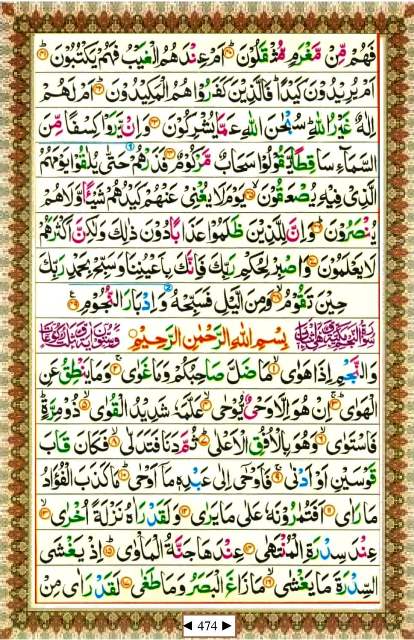 فَهُمْ مِّنْ مَّغْرَمٍ مُّثْقَلُوْنَ ﴿۴۰﴾ اَمْ عِنْدَهُمُ الْغَيْبُ فَهُمْ يَكْتُبُوْنَ ﴿۴۱﴾
اَمْ يُرِيْدُوْنَ كَيْدًا ؕ فَالَّذِيْنَ كَفَرُوْا هُمُ الْمَكِيْدُوْنَ ﴿۴۲﴾ اَمْ لَهُمْ
اِلٰهٌ غَيْرُ اللّٰهِ ؕ سُبْحٰنَ اللّٰهِ عَمَّا يُشْرِكُوْنَ ﴿۴۳﴾ وَاِنْ يَّرَوْا كِسْفًا مِّنَ
السَّمَآءِ سَاقِطًا يَّقُوْلُوْا سَحَابٌ مَّرْكُوْمٌ ﴿۴۴﴾ فَذَرْهُمْ حَتّٰى يُلٰقُوْا يَوْمَهُمُ
الَّذِىْ فِيْهِ يُصْعَقُوْنَ ﴿۴۵﴾ يَوْمَ لَا يُغْنِىْ عَنْهُمْ كَيْدُهُمْ شَيْـًٔا وَّلَا هُمْ
يُنْصَرُوْنَ ﴿۴۶﴾ وَاِنَّ لِلَّذِيْنَ ظَلَمُوْا عَذَابًا دُوْنَ ذٰلِكَ وَلٰكِنَّ اَكْثَرَهُمْ
لَا يَعْلَمُوْنَ ﴿۴۷﴾ وَاصْبِرْ لِحُكْمِ رَبِّكَ فَاِنَّكَ بِاَعْيُنِنَا وَسَبِّحْ بِحَمْدِ رَبِّكَ
حِيْنَ تَقُوْمُ ﴿۴۸﴾ وَمِنَ الَّيْلِ فَسَبِّحْهُ وَاِدْبَارَ النُّجُوْمِ ﴿۴۹﴾
بِسْمِ اللّٰهِ الرَّحْمٰنِ الرَّحِيْمِ
وَالنَّجْمِ اِذَا هَوٰى ﴿۱﴾ مَا ضَلَّ صَاحِبُكُمْ وَمَا غَوٰى ﴿۲﴾ وَمَا يَنْطِقُ عَنِ
الْهَوٰى ﴿۳﴾ اِنْ هُوَ اِلَّا وَحْىٌ يُّوْحٰى ﴿۴﴾ عَلَّمَهٗ شَدِيْدُ الْقُوٰى ﴿۵﴾ ذُوْ مِرَّةٍ ؕ
فَاسْتَوٰى ﴿۶﴾ وَهُوَ بِالْاُفُقِ الْاَعْلٰى ﴿۷﴾ ثُمَّ دَنَا فَتَدَلّٰى ﴿۸﴾ فَكَانَ قَابَ
قَوْسَيْنِ اَوْ اَدْنٰى ﴿۹﴾ فَاَوْحٰى اِلٰى عَبْدِهٖ مَاۤ اَوْحٰى ﴿۱۰﴾ مَا كَذَبَ الْفُؤَادُ
مَا رَاٰى ﴿۱۱﴾ اَفَتُمٰرُوْنَهٗ عَلٰى مَا يَرٰى ﴿۱۲﴾ وَلَقَدْ رَاٰهُ نَزْلَةً اُخْرٰى ﴿۱۳﴾
عِنْدَ سِدْرَةِ الْمُنْتَهٰى ﴿۱۴﴾ عِنْدَهَا جَنَّةُ الْمَاْوٰى ﴿۱۵﴾ اِذْ يَغْشَى
السِّدْرَةَ مَا يَغْشٰى ﴿۱۶﴾ مَا زَاغَ الْبَصَرُ وَمَا طَغٰى ﴿۱۷﴾ لَقَدْ رَاٰى مِنْ
◄ 474 ►